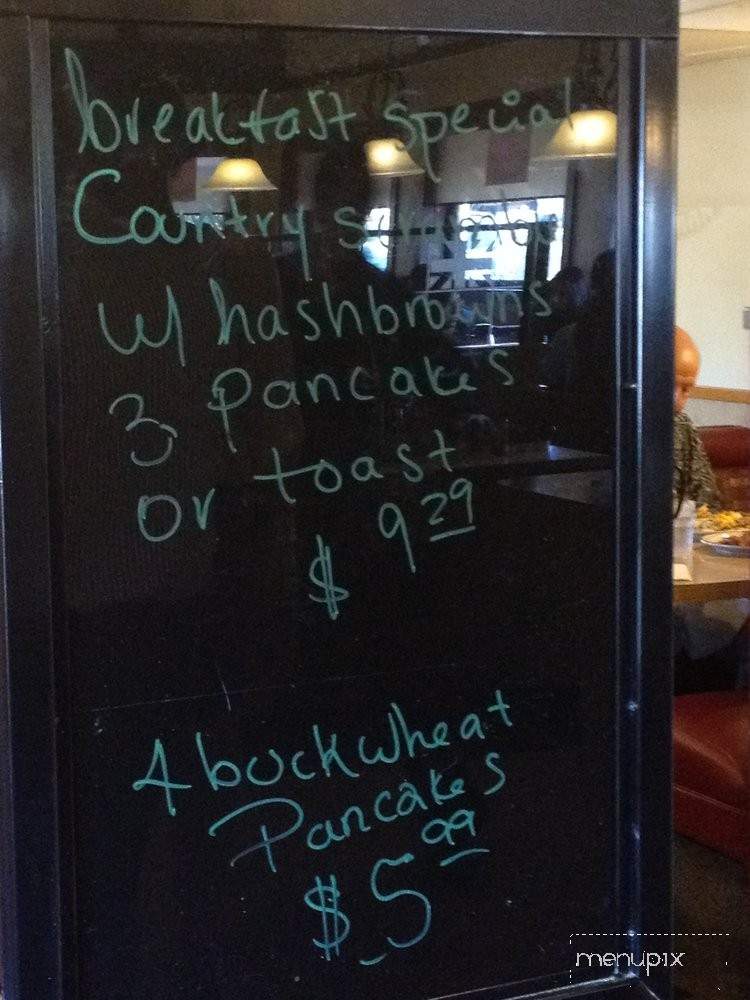 breakfast special
Country scramble
w/ hashbrowns
3 pancakes
or toast
$ 9 29
4 buckwheat
Pancakes
$ 5 99
menupix